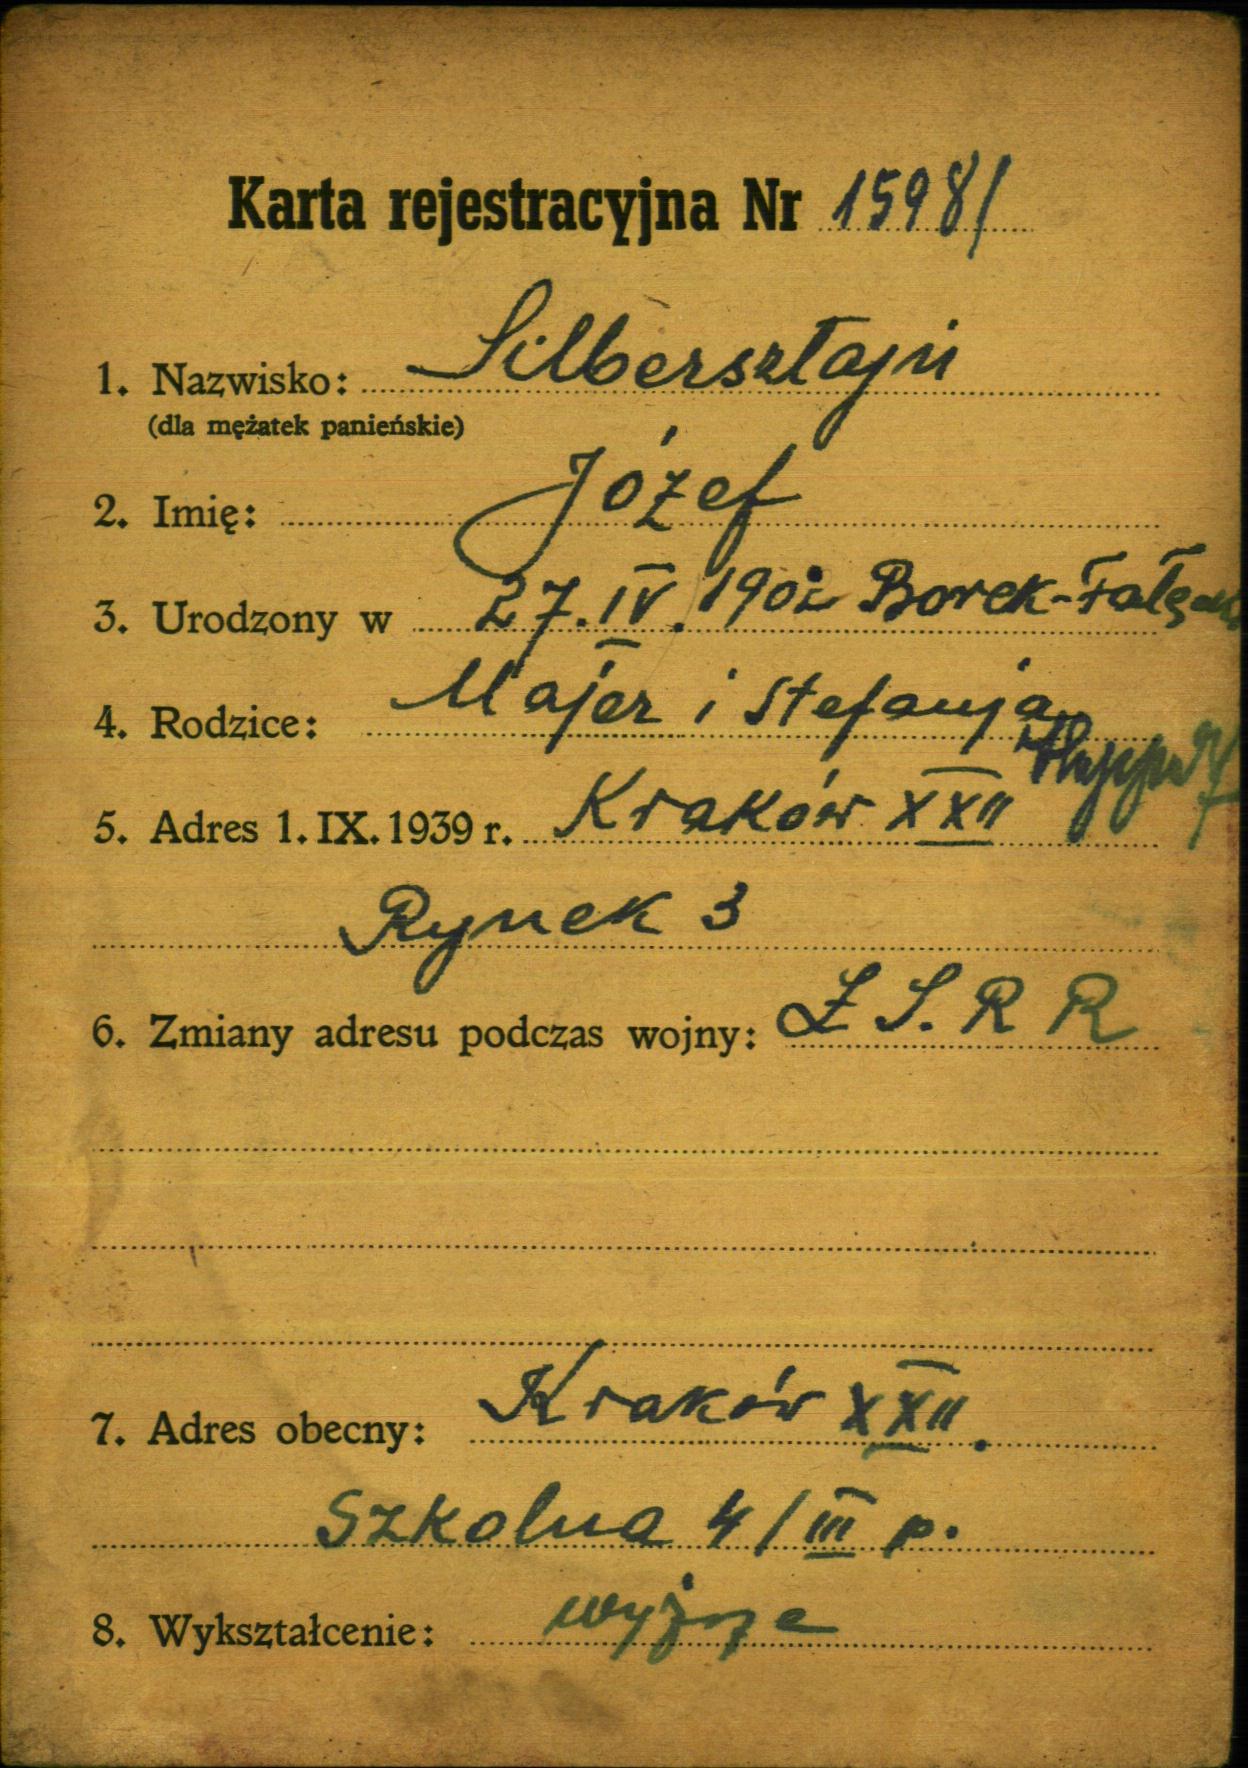 Karta rejestracyjna Nr 1598/
1. Nazwisko: Silbersztajn
(dla mężatek panieńskie)
2. Imię: Józef
3. Urodzony w 27. IV. 1902 Borek-Fałęcki
4. Rodzice: Majer i Stefanja
5. Adres 1. IX. 1939 r. Kraków XXII
Rynek 3
6. Zmiany adresu podczas wojny: Z S. R R
7. Adres obecny: Kraków XXII.
Szkolna 4/III p.
8. Wykształcenie: wyższe